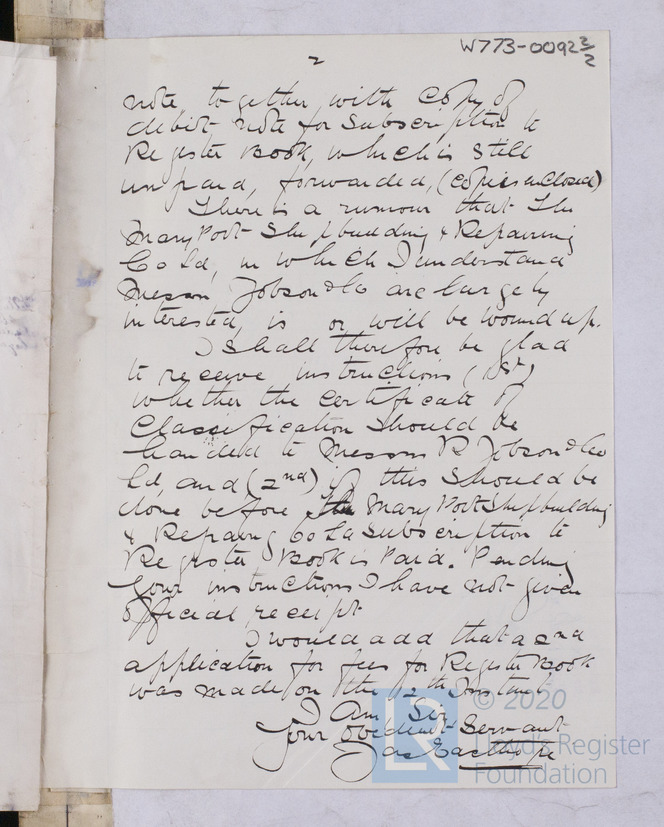 W773-0092 2/2
2
note together with copy of
debit note for Subscription to
Register Book, which is still
unpaid, forwarded, (copies enclosed)
There is a rumour that The
MaryPort Shipbuilding & Repairing
Co Ld, in which I understand
Messrs Jobson & Co are largely
interested, is or will be wound up.
I shall therefore be glad
to receive instructions (1st)
whether the certificate of
Classification should be
handed to Messrs R Jobson & Co
Ld, and (2nd) if this should be
done before the MaryPort Shipbuilding
& Repairing Co Ld Subscription to
Register Book is Paid. Pending
Your instructions I have not given
official receipt
I would add that a 2nd
application for fees for Register Book
was made on the 12th Instant
I Am Sir
Your obedient Servant
Jas Easthope
LR © 2020
Lloyd's Register
Foundation